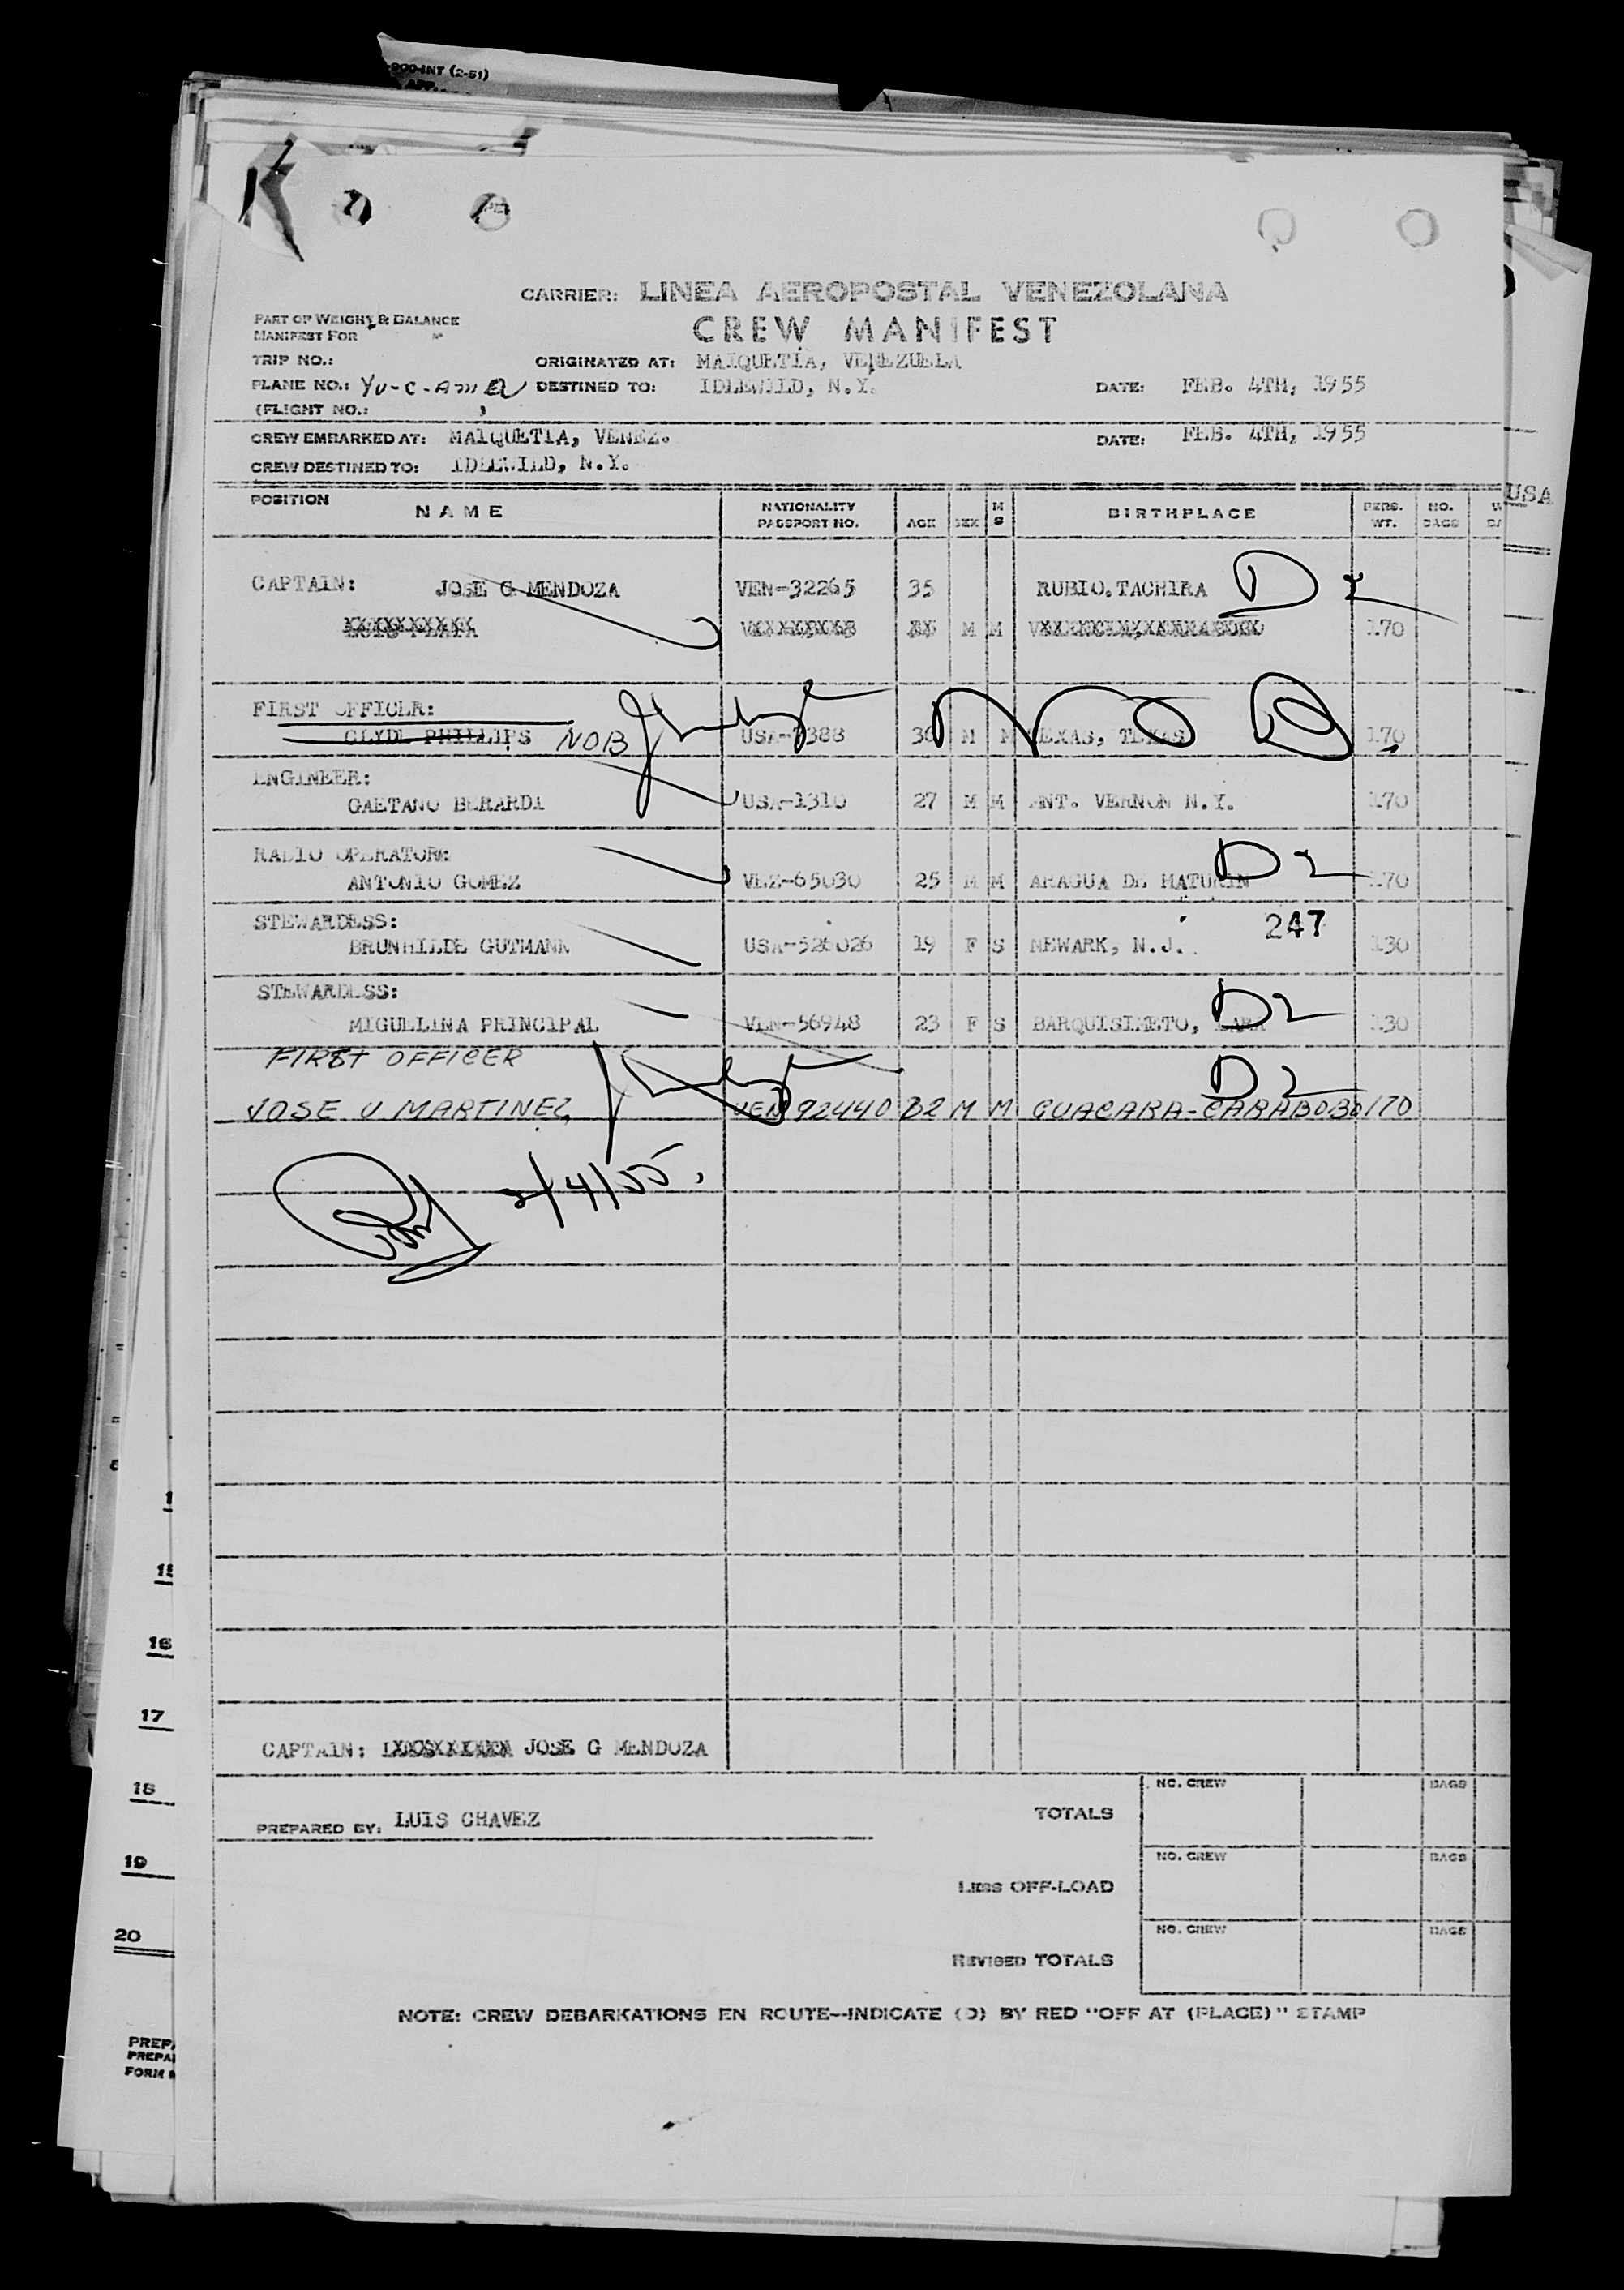 900-INT (2-51)
CARRIER: LINEA AEROPOSTAL VENEZOLANA
PART OF WEIGHT & BALANCE
MANIFEST FOR
CREW MANIFEST
TRIP NO.: ORIGINATED AT: MAIQUETIA, VENEZUELA
PLANE NO.: YV-C-AMEZ DESTINED TO: IDLEWILD, N.Y. DATE: FEB. 4TH, 1955
(FLIGHT NO.: )
CREW EMBARKED AT: MAIQUETIA, VENEZ. DATE: FEB. 4TH, 1955
CREW DESTINED TO: IDLEWILD, N.Y.
USA
POSITION NAME NATIONALITY PASSPORT NO. AGE SEX M S BIRTHPLACE PERS. WT. NO. BAGS
CAPTAIN: JOSE G MENDOZA VEN-32265 35 RUBIO.TACHIRA D 2
M M 170
FIRST OFFICER:
CLYDE PHILLIPS NOB USA-7388 30 M M TEXAS, TEXAS 170
ENGINEER:
GAETANO BERARDI USA-1310 27 M M MNT. VERNON N.Y. 170
RADIO OPERATOR:
ANTONIO GOMEZ VEZ-65030 25 M M ARAGUA DE MATURIN D 2 170
STEWARDESS: 247
BRUNHILDE GUTMANN USA-526026 19 F S NEWARK, N.J. 130
STEWARDESS:
MIGUELINA PRINCIPAL VEN-56948 23 F S BARQUISIMETO, LARA D 2 130
FIRST OFFICER D 2
JOSE V MARTINEZ VEN 92440 32 M M GUACARA-CARABOBO 170
2/4/55
16
17
CAPTAIN: JOSE G MENDOZA
18
NO. CREW BAGS
TOTALS
PREPARED BY: LUIS CHAVEZ
19
NO. CREW BAGS
LESS OFF-LOAD
20
NO. CREW BAGS
REVISED TOTALS
NOTE: CREW DEBARKATIONS EN ROUTE--INDICATE (D) BY RED "OFF AT (PLACE)" STAMP
PREPA
PREPAI
FORM